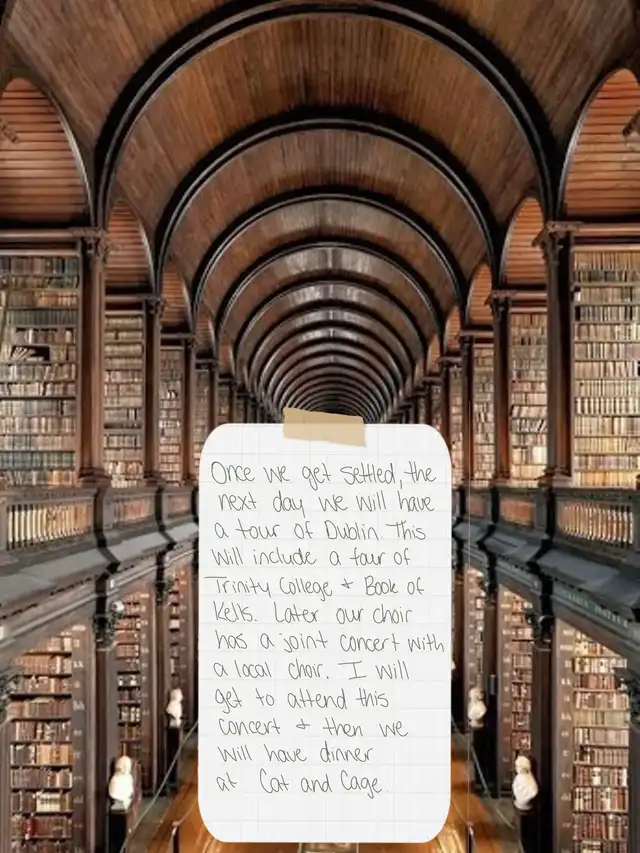 Once we get settled, the
next day we will have
a tour of Dublin. This
will include a tour of
Trinity College + Book of
Kells. Later our choir
has a joint concert with
a local choir. I will
get to attend this
concert + then we
will have dinner
at Cat and Cage.